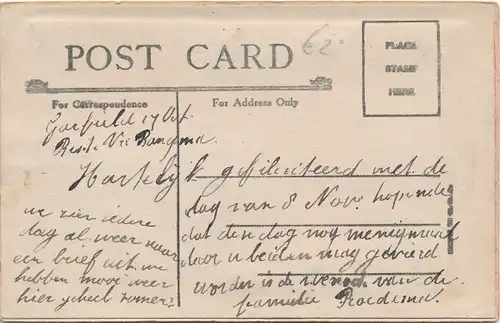 62
POST CARD
PLACE
STAMP
HERE
For Correspondence
For Address Only
Garfield 17 Oct.
Beste Vri
Hartelijk gefiliciteerd met de
dag van 8 Nov. hopende
dat den dag nog menigmaal
door u beiden mag gevierd
worden is de wensch van de
familie
we zien iedere
dag al weer naar
een brief uit. we
hebben mooi weer
hier geheel zomer